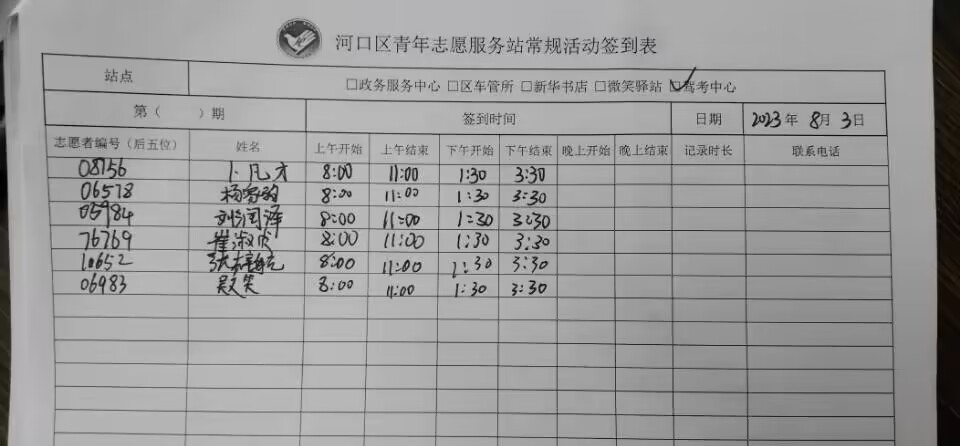 河口区青年志愿服务站常规活动签到表
站点 □政务服务中心 □区车管所 □新华书店 □微笑驿站 ☑驾考中心
第（ ）期 签到时间 日期 2023年 8月 3日
志愿者编号（后五位） 姓名 上午开始 上午结束 下午开始 下午结束 晚上开始 晚上结束 记录时长 联系电话
08756 卜凡才 8:00 11:00 1:30 3:30
06578 8:00 11:00 1:30 3:30
05984 刘润泽 8:00 11:00 1:30 3:30
76769 崔淑贞 8:00 11:00 1:30 3:30
10652 8:00 11:00 1:30 3:30
06983 吴文笑 8:00 11:00 1:30 3:30